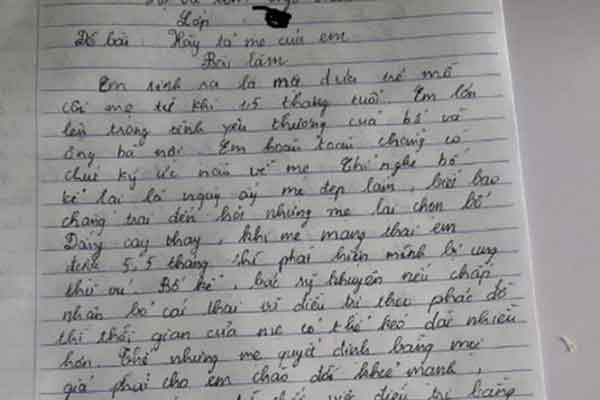 Lớp
Đề bài : Hãy tả mẹ của em
Bài làm
Em sinh ra là một đứa trẻ mồ
côi mẹ từ khi 15 tháng tuổi. Em lớn
lên trong tình yêu thương của bố và
ông bà nội. Em hoàn toàn chẳng có
chút ký ức nào về mẹ. Chỉ nghe bố
kể lại là ngày ấy mẹ đẹp lắm, biết bao
chàng trai đến hỏi nhưng mẹ lại chọn bố
Đắng cay thay, khi mẹ mang thai em
được 5,5 tháng thì phát hiện mình bị ung
thư vú. Bố kể, bác sỹ khuyên nếu chấp
nhận bỏ cái thai và điều trị theo phác đồ
thì thời gian của mẹ có thể kéo dài nhiều
hơn. Thế nhưng mẹ quyết định bằng mọi
giá phải cho em chào đời khỏe mạnh,
điều trị bằng